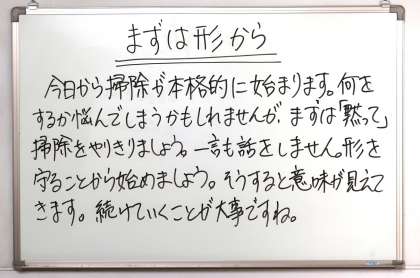 まずは形から
今日から掃除が本格的に始まります。何を
するか悩んでしまうかもしれませんが、まずは「黙って」
掃除をやりきりましょう。一言も話をしません。形を
守ることから始めましょう。そうすると意味が見えて
きます。続けていくことが大事ですね。